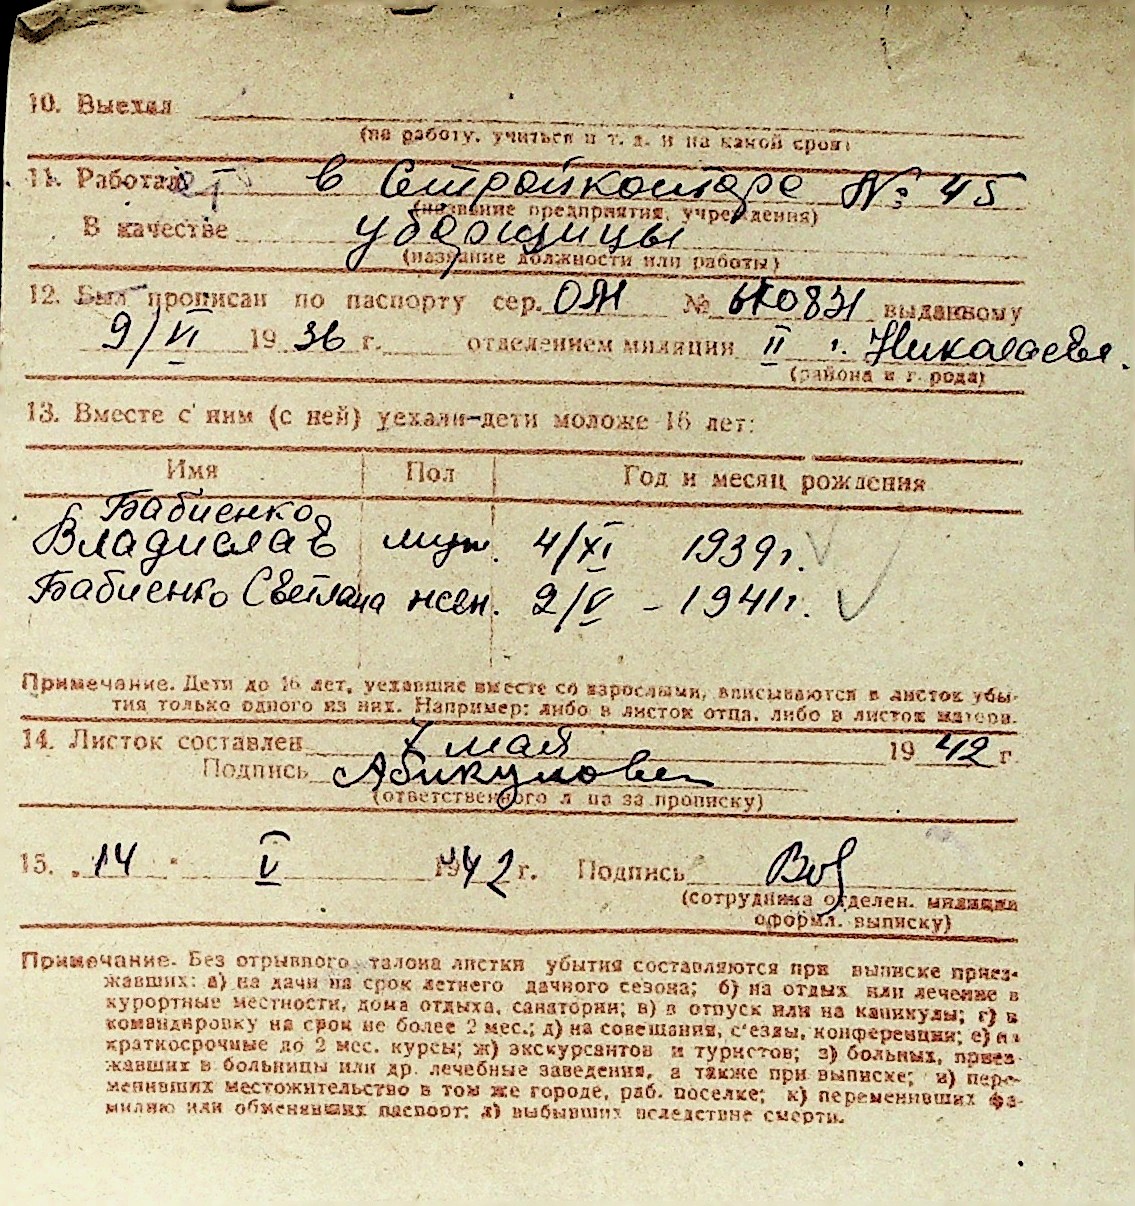 10. Выехал
(на работу, учиться и т. д. и на какой срок)
11. Работает в Стройконторе № 45
(название предприятия, учреждения)
В качестве уборщицы
(название должности или работы)
12. Был прописан по паспорту сер. ОЯ № выданному
9/VI 1936 г. отделением милиции II г. Николаева.
(района и г. рода)
13. Вместе с ним (с ней) уехали дети моложе 16 лет:
Имя Пол Год и месяц рождения
Бабиенко
Владислав муж. 4/XI 1939г.
Бабиенко Светлана жен. 2/V - 1941г.
Примечание. Дети до 16 лет, уехавшие вместе со взрослыми, вписываются в листок убы-
тия только одного из них. Например: либо в листок отца, либо в листок матери.
14. Листок составлен 7 мая 1942 г.
Подпись
(ответственного л ца за прописку)
15. 14 " V 1942 г. Подпись
(сотрудника отделен. милиции
оформл. выписку)
Примечание. Без отрывного талона листки убытия составляются при выписке приез-
жавших: а) на дачи на срок летнего дачного сезона; б) на отдых или лечение в
курортные местности, дома отдыха, санатории; в) в отпуск или на каникулы; г) в
командировку на срок не более 2 мес.; д) на совещания, с'езды, конференции; е) на
краткосрочные до 2 мес. курсы; ж) экскурсантов и туристов; з) больных, приез-
жавших в больницы или др. лечебные заведения, а также при выписке; и) пере-
менивших местожительство в том же городе, раб. поселке; к) переменивших фа-
милию или обменявших паспорт; л) выбывших вследствие смерти.